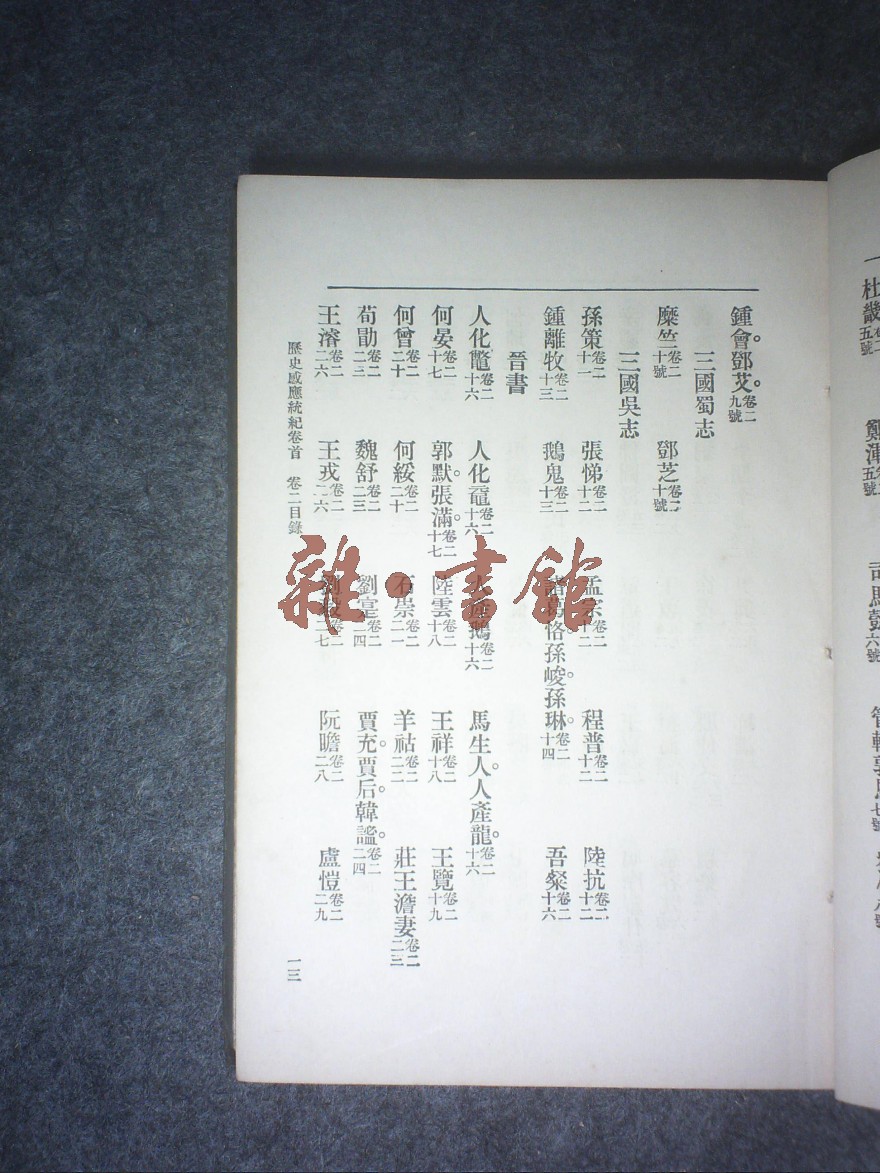 鍾會。鄧艾。卷二九號
三國蜀志
糜竺卷二十號 鄧芝卷二十號
三國吳志
孫策卷二十一 張悌卷二十二 孟宗卷二十二 程普卷二十二 陸抗卷二十二
鍾離牧卷二十三 鵝鬼卷二十三 諸葛恪。孫峻。孫琳。卷二十四 吾粲卷二十六
晉書
人化鼈卷二十六 人化黿卷二十六 鵝卷二十六 馬生人。人產龍。卷二十六
何晏卷二十七 郭默。張滿。卷二十七 陸雲卷二十八 王祥卷二十八 王覽卷二十九
何曾卷二二十 何綏卷二二十 石崇卷二二一 羊祜卷二二二 莊王澹妻卷二二三
荀勖卷二二三 魏舒卷二二三 劉寔卷二二四 賈充。賈后。韓謐。卷二二四
王濬卷二二六 王戎卷二二六 卷二二七 阮瞻卷二二八 盧愷卷二二九
歷史感應統紀卷首 卷二目錄
一三
雜·書館
杜畿卷二五號
鄭渾卷二五號
六號
七號